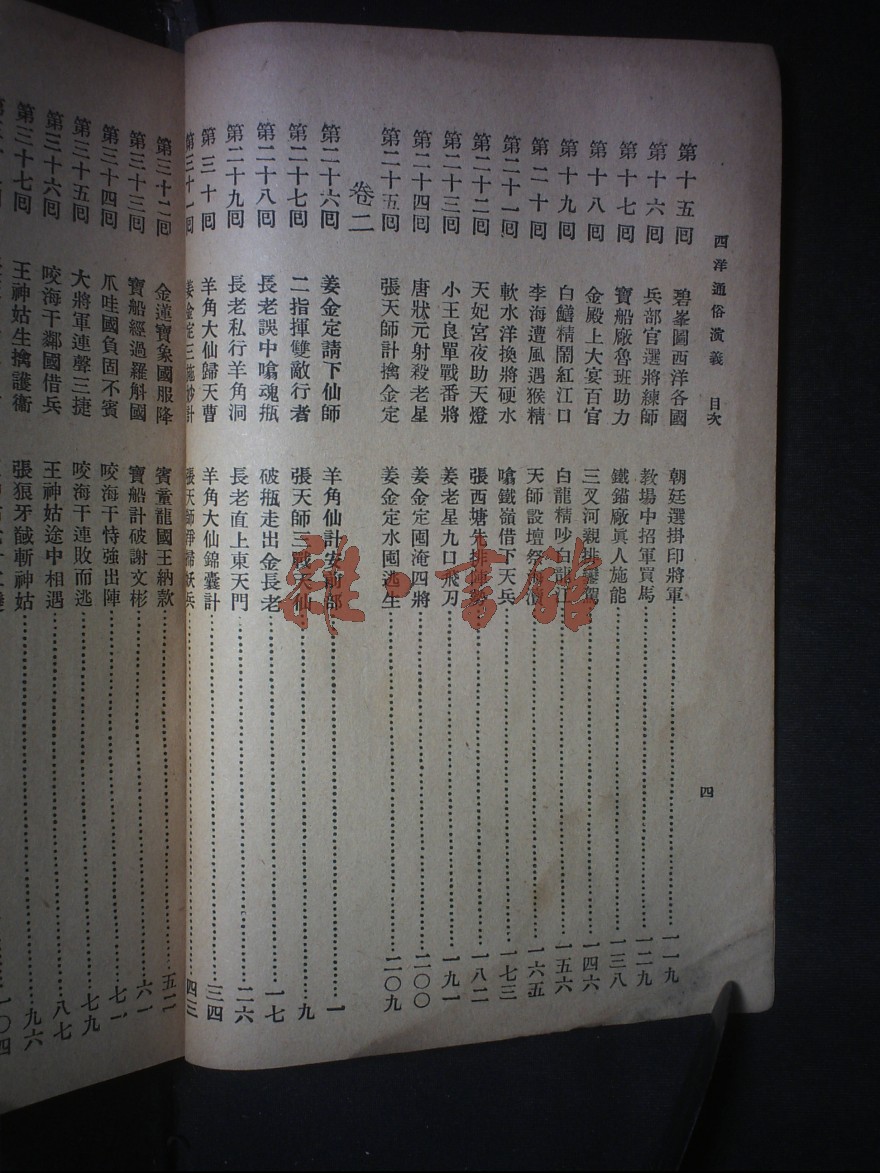 西洋通俗演義　目次　四
第十五回　碧峯圖西洋各國　朝廷選掛印將軍……一一九
第十六回　兵部官選將練師　教場中招軍買馬……一二九
第十七回　寶船廠魯班助力　鐵錨廠眞人施能……一三八
第十八回　金殿上大宴百官　三叉河親排鑾駕……一四六
第十九回　白鱔精鬧紅江口　白龍精吵白龍江……一五六
第二十回　李海遭風遇猴精　天師設壇祭海瀆……一六五
第二十一回　軟水洋換將硬水　噏鐵嶺借下天兵……一七三
第二十二回　天妃宮夜助天燈　張西塘先排陣勢……一八二
第二十三回　小王良單戰番將　姜老星九口飛刀……一九一
第二十四回　唐狀元射殺老星　姜金定囤淹四將……二〇〇
第二十五回　張天師計擒金定　姜金定水囤逃生……二〇九
卷二
第二十六回　姜金定請下仙師　羊角仙計安前部……一
第二十七回　二指揮雙敵行者　張天師三戰大仙……九
第二十八回　長老誤中噏魂瓶　破瓶走出金長老……一七
第二十九回　長老私行羊角洞　長老直上東天門……二六
第三十回　羊角大仙歸天曹　羊角大仙錦囊計……三四
第三十一回　姜金定三施妙計　張天師淨掃妖兵……四三
第三十二回　金蓮寶象國服降　賓童龍國王納款……五二
第三十三回　寶船經過羅斛國　寶船計破謝文彬……六一
第三十四回　爪哇國負固不賓　咬海干恃強出陣……七一
第三十五回　大將軍連聲三捷　咬海干連敗而逃……七九
第三十六回　咬海干鄰國借兵　王神姑途中相遇……八七
第三十七回　王神姑生擒護衞　張狼牙馘斬神姑……九六
一〇四
雅·書館